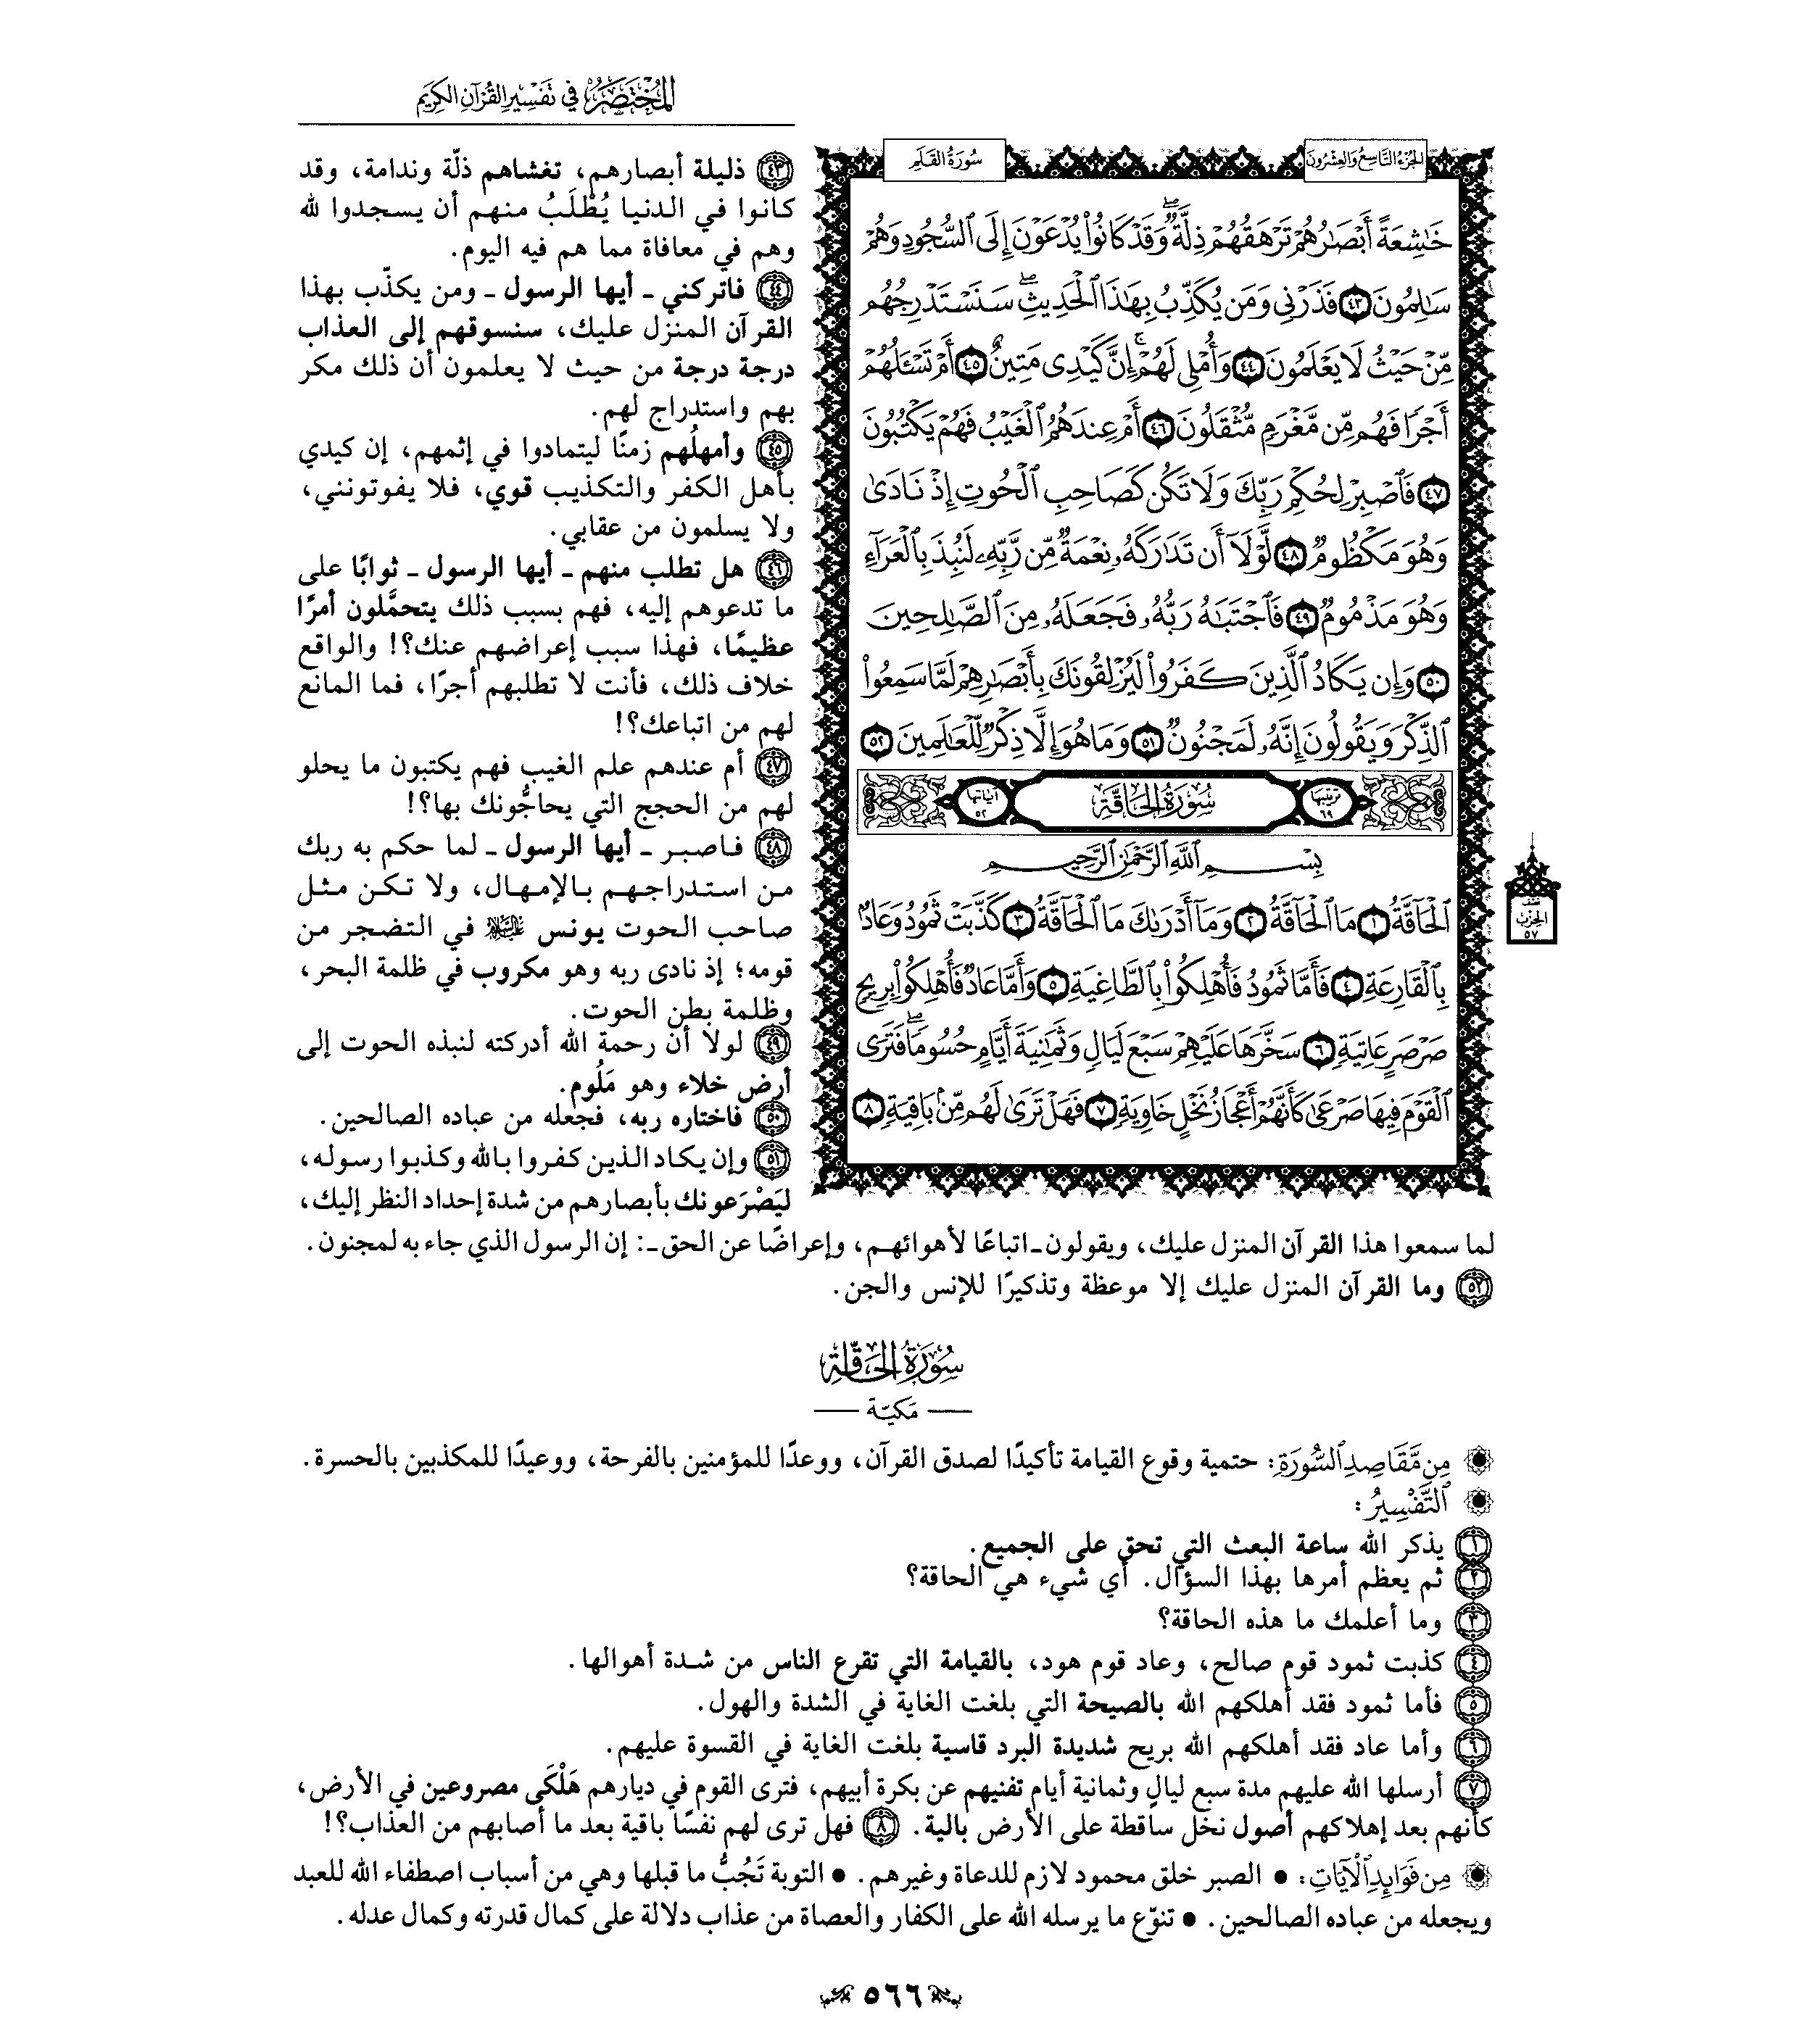 المُخْتَصَرُ فِي تَفْسِيرِ القُرْآنِ الكَرِيمِ
الجُزْءُ التَّاسِعُ وَالعِشْرُونَ
سُورَةُ القَلَمِ
خَٰشِعَةً أَبْصَٰرُهُمْ تَرْهَقُهُمْ ذِلَّةٌۖ وَقَدْ كَانُوا۟ يُدْعَوْنَ إِلَى ٱلسُّجُودِ وَهُمْ
سَٰلِمُونَ ٤٣ فَذَرْنِى وَمَن يُكَذِّبُ بِهَٰذَا ٱلْحَدِيثِۖ سَنَسْتَدْرِجُهُم
مِّنْ حَيْثُ لَا يَعْلَمُونَ ٤٤ وَأُمْلِى لَهُمْۚ إِنَّ كَيْدِى مَتِينٌ ٤٥ أَمْ تَسْـَٔلُهُمْ
أَجْرًا فَهُم مِّن مَّغْرَمٍ مُّثْقَلُونَ ٤٦ أَمْ عِندَهُمُ ٱلْغَيْبُ فَهُمْ يَكْتُبُونَ
٤٧ فَٱصْبِرْ لِحُكْمِ رَبِّكَ وَلَا تَكُن كَصَاحِبِ ٱلْحُوتِ إِذْ نَادَىٰ
وَهُوَ مَكْظُومٌ ٤٨ لَّوْلَآ أَن تَدَٰرَكَهُۥ نِعْمَةٌ مِّن رَّبِّهِۦ لَنُبِذَ بِٱلْعَرَآءِ
وَهُوَ مَذْمُومٌ ٤٩ فَٱجْتَبَٰهُ رَبُّهُۥ فَجَعَلَهُۥ مِنَ ٱلصَّٰلِحِينَ
٥٠ وَإِن يَكَادُ ٱلَّذِينَ كَفَرُوا۟ لَيُزْلِقُونَكَ بِأَبْصَٰرِهِمْ لَمَّا سَمِعُوا۟
ٱلذِّكْرَ وَيَقُولُونَ إِنَّهُۥ لَمَجْنُونٌ ٥١ وَمَا هُوَ إِلَّا ذِكْرٌ لِّلْعَٰلَمِينَ ٥٢
ترتيبها ٦٩ سُورَةُ الحَاقَّةِ آياتها ٥٢
بِسْمِ ٱللَّهِ ٱلرَّحْمَٰنِ ٱلرَّحِيمِ
ٱلْحَآقَّةُ ١ مَا ٱلْحَآقَّةُ ٢ وَمَآ أَدْرَىٰكَ مَا ٱلْحَآقَّةُ ٣ كَذَّبَتْ ثَمُودُ وَعَادٌۢ
بِٱلْقَارِعَةِ ٤ فَأَمَّا ثَمُودُ فَأُهْلِكُوا۟ بِٱلطَّاغِيَةِ ٥ وَأَمَّا عَادٌ فَأُهْلِكُوا۟ بِرِيحٍ
صَرْصَرٍ عَاتِيَةٍ ٦ سَخَّرَهَا عَلَيْهِمْ سَبْعَ لَيَالٍ وَثَمَٰنِيَةَ أَيَّامٍ حُسُومًاۖ فَتَرَى
ٱلْقَوْمَ فِيهَا صَرْعَىٰ كَأَنَّهُمْ أَعْجَازُ نَخْلٍ خَاوِيَةٍ ٧ فَهَلْ تَرَىٰ لَهُم مِّنۢ بَاقِيَةٍ ٨
الحِزْب
٥٧
٤٣ ذليلة أبصارهم، تغشاهم ذلّة وندامة، وقد
كانوا في الدنيا يُطْلَبُ منهم أن يسجدوا لله
وهم في معافاة مما هم فيه اليوم.
٤٤ فاتركني ـ أيها الرسول ـ ومن يكذّب بهذا
القرآن المنزل عليك، سنسوقهم إلى العذاب
درجة درجة من حيث لا يعلمون أن ذلك مكر
بهم واستدراج لهم.
٤٥ وأمهلُهم زمنًا ليتمادوا في إثمهم، إن كيدي
بأهل الكفر والتكذيب قوي، فلا يفوتونني،
ولا يسلمون من عقابي.
٤٦ هل تطلب منهم ـ أيها الرسول ـ ثوابًا على
ما تدعوهم إليه، فهم بسبب ذلك يتحمَّلون أمرًا
عظيمًا، فهذا سبب إعراضهم عنك؟! والواقع
خلاف ذلك، فأنت لا تطلبهم أجرًا، فما المانع
لهم من اتباعك؟!
٤٧ أم عندهم علم الغيب فهم يكتبون ما يحلو
لهم من الحجج التي يحاجُّونك بها؟!
٤٨ فاصبر ـ أيها الرسول ـ لما حكم به ربك
من استدراجهم بالإمهال، ولا تكن مثل
صاحب الحوت يونس عليه السلام في التضجر من
قومه؛ إذ نادى ربه وهو مكروب في ظلمة البحر،
وظلمة بطن الحوت.
٤٩ لولا أن رحمة الله أدركته لنبذه الحوت إلى
أرض خلاء وهو مَلُوم.
٥٠ فاختاره ربه، فجعله من عباده الصالحين.
٥١ وإن يكاد الذين كفروا بالله وكذبوا رسوله،
ليَصْرَعونك بأبصارهم من شدة إحداد النظر إليك،
لما سمعوا هذا القرآن المنزل عليك، ويقولون ـ اتباعًا لأهوائهم، وإعراضًا عن الحق ـ: إن الرسول الذي جاء به لمجنون.
٥٢ وما القرآن المنزل عليك إلا موعظة وتذكيرًا للإنس والجن.
سُورَةُ الحَاقَّةِ
مَكيّة
مِن مَّقَاصِدِ ٱلسُّورَةِ: حتمية وقوع القيامة تأكيدًا لصدق القرآن، ووعدًا للمؤمنين بالفرحة، ووعيدًا للمكذبين بالحسرة.
ٱلتَّفْسِيرُ:
١ يذكر الله ساعة البعث التي تحق على الجميع.
٢ ثم يعظم أمرها بهذا السؤال. أي شيء هي الحاقة؟
٣ وما أعلمك ما هذه الحاقة؟
٤ كذبت ثمود قوم صالح، وعاد قوم هود، بالقيامة التي تقرع الناس من شدة أهوالها.
٥ فأما ثمود فقد أهلكهم الله بالصيحة التي بلغت الغاية في الشدة والهول.
٦ وأما عاد فقد أهلكهم الله بريح شديدة البرد قاسية بلغت الغاية في القسوة عليهم.
٧ أرسلها الله عليهم مدة سبع ليالٍ وثمانية أيام تفنيهم عن بكرة أبيهم، فترى القوم في ديارهم هَلْكَى مصروعين في الأرض،
كأنهم بعد إهلاكهم أصول نخل ساقطة على الأرض بالية. ٨ فهل ترى لهم نفسًا باقية بعد ما أصابهم من العذاب؟!
مِن فَوَائِدِ ٱلْآيَاتِ: • الصبر خلق محمود لازم للدعاة وغيرهم. • التوبة تَجُبُّ ما قبلها وهي من أسباب اصطفاء الله للعبد
ويجعله من عباده الصالحين. • تنوّع ما يرسله الله على الكفار والعصاة من عذاب دلالة على كمال قدرته وكمال عدله.
٥٦٦